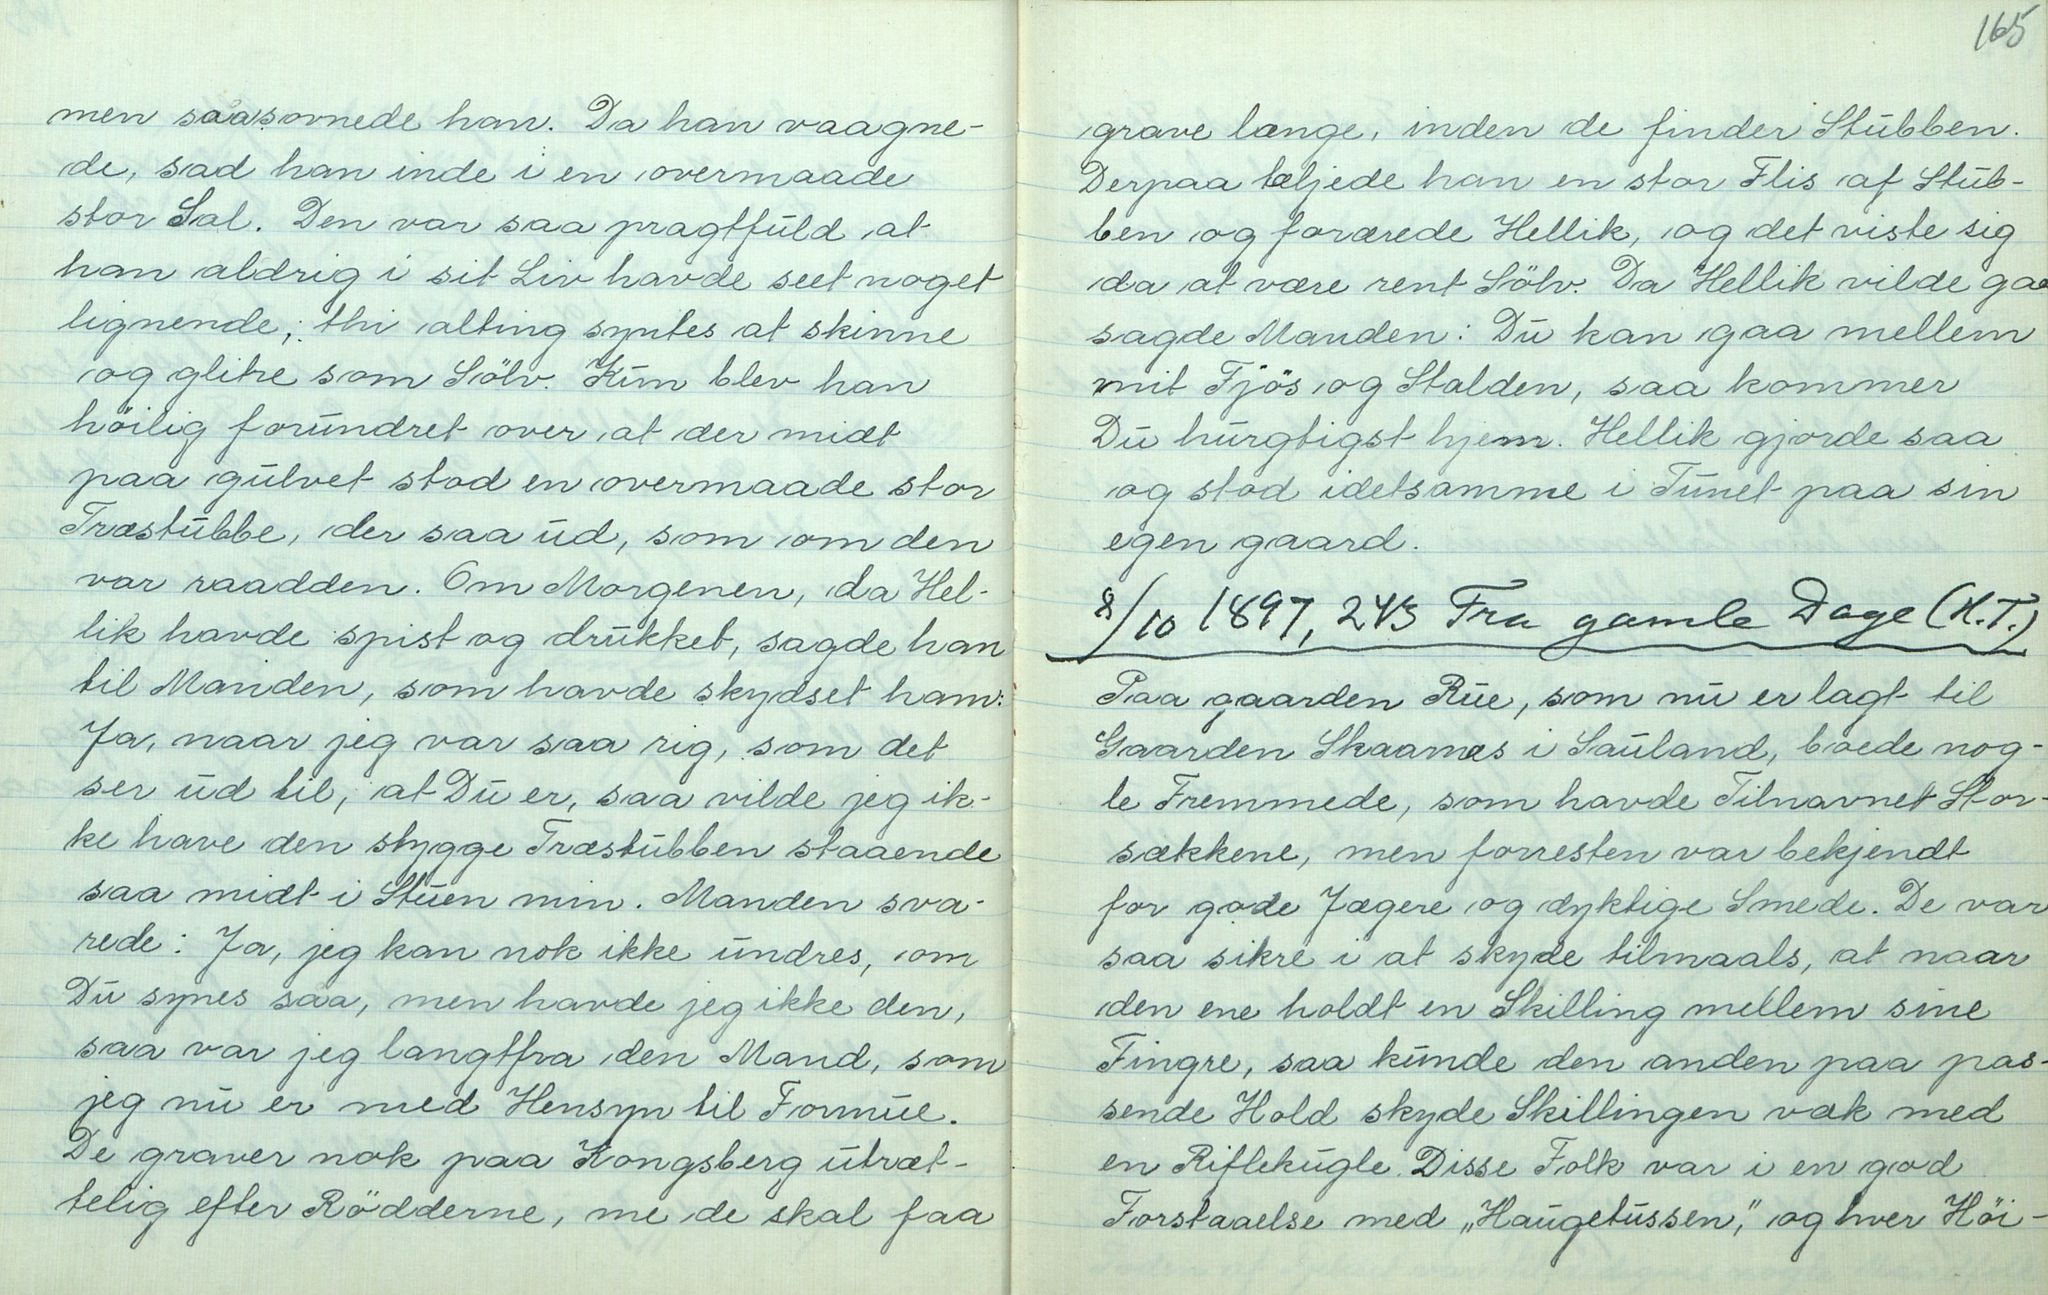 men saa sovnede han. Da han vaagne-
de, sad han inde i en overmaade
stor Sal. Den var saa pragtfuld at
han aldrig i sit Liv havde seet noget
lignende; thi alting syntes at skinne
og glitre som Sölv. Kun blev han
höilig forundret over at der midt
paa gulvet stod en overmaade stor
Træstubbe, der saa ud, som om den
var raadden. Om Morgenen, da Hel-
lik havde spist og drukket, sagde han
til Manden, som havde skydset ham:
Ja, naar jeg var saa rig, som det
ser ud til, at Du er, saa vilde jeg ik-
ke have den stygge Træstubben staaende
saa midt i Stuen min. Manden sva-
rede: Ja, jeg kan nok ikke undres, om
Du synes saa, men havde jeg ikke den,
saa var jeg langtfra den Mand, som
jeg nu er med Hensyn til Formue.
De graver nok paa Kongsberg utræt-
telig efter Rödderne, me de skal faa
165
grave længe, inden de finder Stubben.
Derpaa teljede han en stor Flis af Stub-
ben og forærede Hellik, og det viste sig
da at være rent Sölv. Da Hellik vilde gaa
sagde Manden: Du kan gaa mellem
mit Fjös og Stalden, saa kommer
Du hurgtigst hjem. Hellik gjorde saa
og stod idetsamme i Tunet paa sin
egen gaard.
8/10 1897, 243 Fra gamle Dage (H.T.)
Paa gaarden Rue, som nu er lagt til
Gaarden Skaarnes i Sauland, boede nog-
le Fremmede, som havde Tilnavnet Stor-
sækkene, men forresten var bekjendt
for gode Jægere og dyktige Smede. De var
saa sikre i at skyde tilmaals, at naar
den ene holdt en Skilling mellem sine
Fingre, saa kunde den anden paa pas-
sende Hold skyde Skillingen væk med
en Riflekugle. Disse Folk var i en god
Forstaaelse med „Haugetussen," og hver Höi-